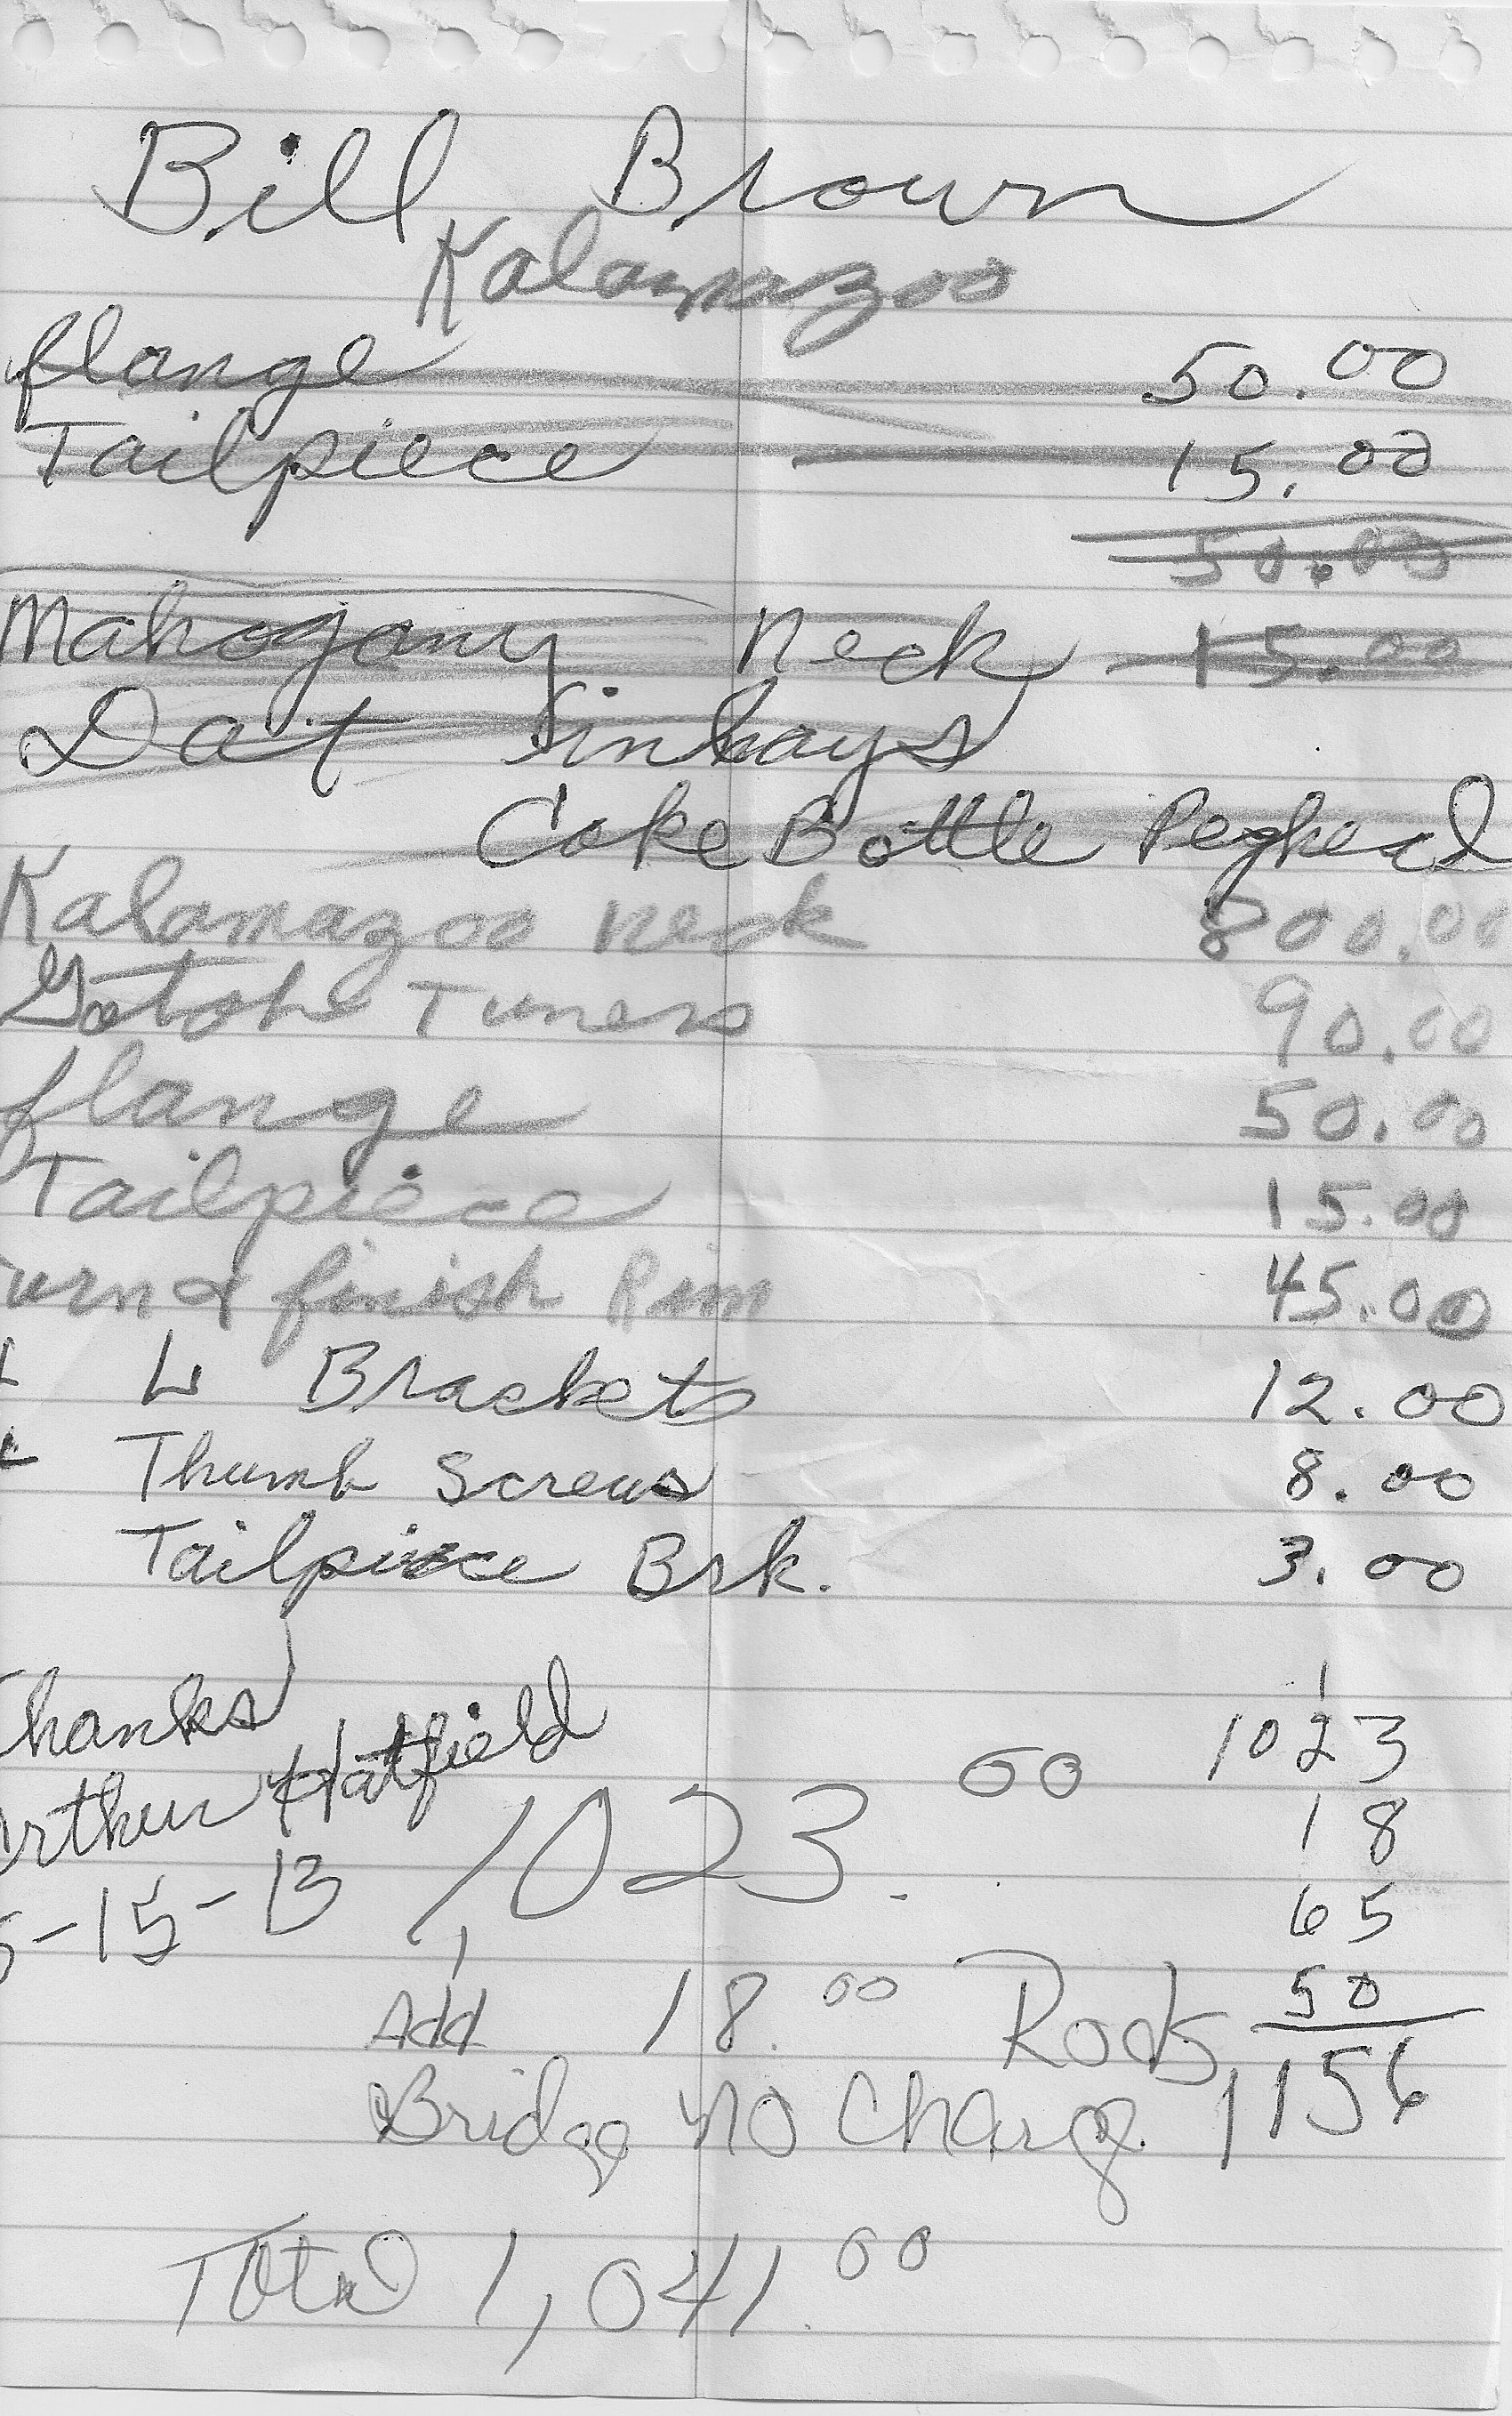 Bill Brown
Kalamazoo
flange 50.00
Tailpiece 15.00
50.00
Mahogany Neck 15.00
Dot Inlays
Coke Bottle Peghead
Kalamazoo neck 800.00
Gotoh Tuners 90.00
flange 50.00
Tailpiece 15.00
urn & finish Rim 45.00
L Brackets 12.00
Thumb Screws 8.00
Tailpiece Brk. 3.00
1
hanks 1023
rthur Hatfield
1,023.00 18
5-15-13 65
Add 18.00 Rods 50
Bridge no Charge 1156
Total 1,041.00